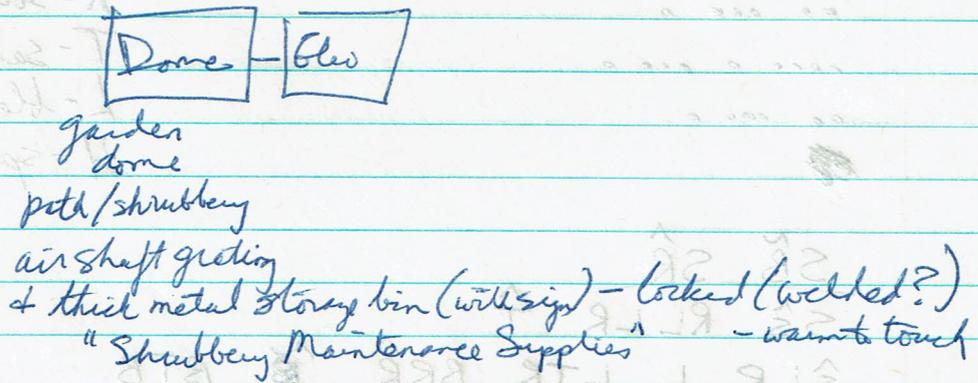 Dome - Elev
garden
dome
path/shrubbery
airshaft grating
+ thick metal storage bin (with sign) - locked (welded?)
"Shrubbery Maintenance Supplies" - warm to touch